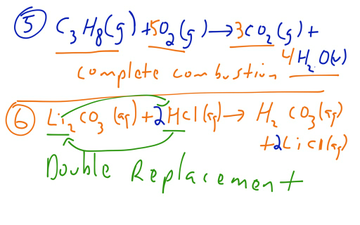 ⑤ C₃H₈(g) + 5O₂(g) → 3CO₂(g) +
4H₂O(v)
complete combustion
⑥ Li₂CO₃(aq) + 2HCl(aq) → H₂CO₃(aq)
+2LiCl(aq)
Double Replacement